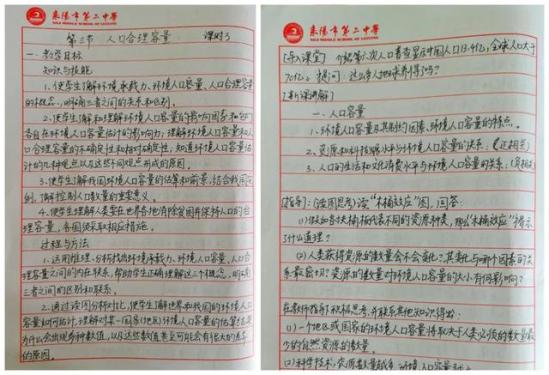 耒阳市第二中学
第三节 人口合理容量 课时3
一.教学目标
知识与技能
1.使学生了解环境承载力、环境人口容量、人口合理容量
的概念，明确三者之间的关系和区别。
2.使学生了解和理解环境人口容量的影响因素和它们
各自在环境人口容量估计的影响力；理解环境人口容量和人
口合理容量的不确定性和相对确定性，知道环境人口容量估
计的几种观点以及这些不同观点形成的原因。
3.使学生了解我国环境人口容量的估算和前景，结合我国
例，了解控制人口数量的重要意义。
4.使学生理解人类要在世界各地消除贫困并保持人口的合
理容量，各国须采取相应措施。
过程与方法
1.运用推理、分析找出环境承载力、环境人口容量、人口合
理容量之间的内在联系，帮助学生正确理解这三个概念，明确
三者之间的区别和联系。
2.通过读图分析对比，使学生了解世界和我国的环境人口
容量如何估计，理解对某一国家（地区）环境人口容量的估算
为什么会出现多种数值，以及这些数值甚至可能会有很大的差
的原因。
耒阳市第二中学
[导入课堂] 第六次人口普查显示中国人口13.4亿，全球人口大于
70亿。提问：这么多人地球养得了吗？
[新课讲解]
一.人口容量
1.环境人口容量及其制约因素、环境人口容量的特点。
2.资源和科技发展水平与环境人口容量的关系：（正相关）
3.人口的生活和文化消费水平与环境人口容量的关系：
[指导]：（读图思考）读“木桶效应”图，回答：
(1)假如各块桶板代表不同的资源种类，那“木桶效应”揭示
了什么道理？
(2)人类获得资源的数量会不会变化？其变化与哪个因素的关
系最密切？资源的数量对环境人口容量的大小有何影响？
在教师指导下积极思考，并联系其他知识得出：
(1)一个地区或国家的环境人口容量将取决于人类必须的数量最
少的自然资源的数量。
(2)科学技术、资源数量